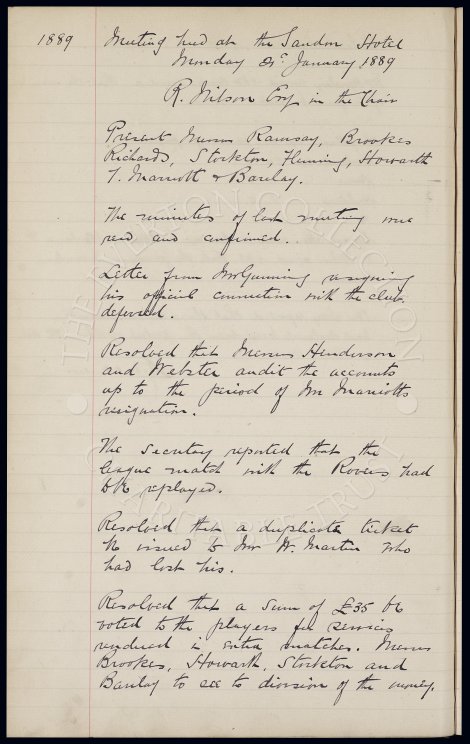 1889
Meeting held at the Sandon Hotel
Monday January 1889
R. Wilson Esq in the Chair
Present Messrs Ramsay, Brookes
Richards, Stockton, Fleming, Howarth
T. Marriott & Barclay.
The minutes of last meeting were
read and confirmed.
Letter from Mr Gunning resigning
his official connection with the club
deferred.
Resolved that Messrs Henderson
and Webster audit the accounts
up to the period of Mr Marriotts
resignation.
The Secretary reported that the
league match with the Rovers had
to be replayed.
Resolved that a duplicate ticket
be issued to Mr W. Martin who
had lost his.
Resolved that a sum of £35 be
voted to the players for services
rendered in extra matches. Messrs
Brookes, Howarth, Stockton and
Barclay to see to division of the money.
THE EVERTON COLLECTION
CHARITABLE TRUST